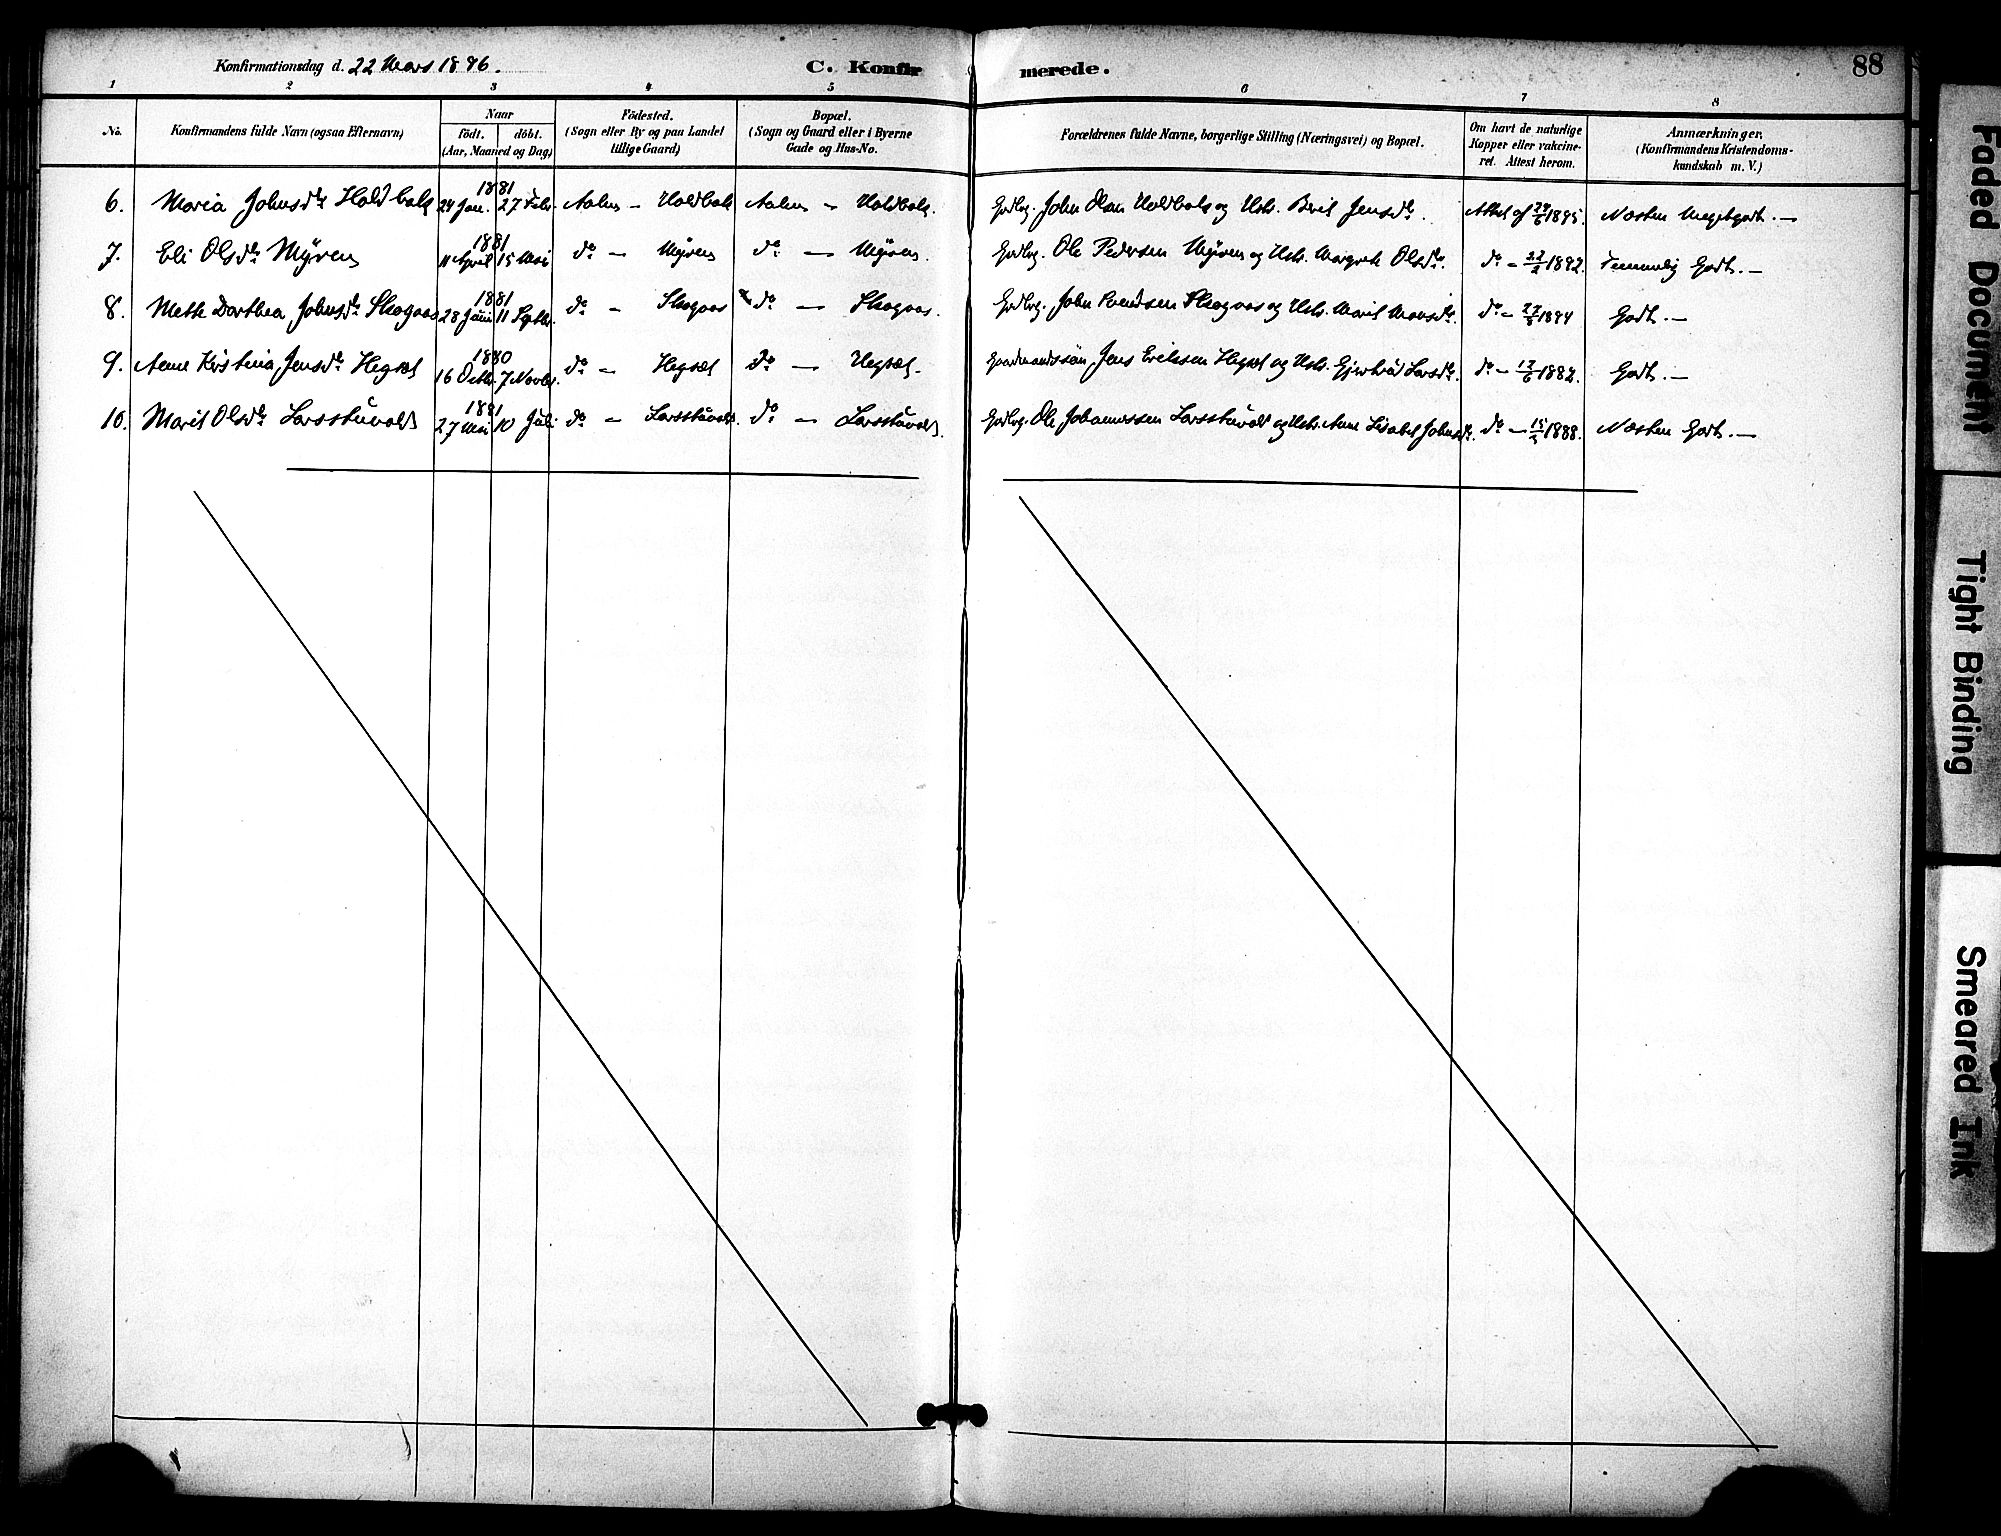 Konfirmationsdag d. 22 Mars 1896.
C. Konfirmerede.
88
1 2 3 4 5 6 7 8
No.
Konfirmandens fulde Navn (ogsaa Efternavn)
Naar
født. døbt.
(Aar, Maaned og Dag)
Fødested.
(Sogn eller By og paa Landet
tillige Gaard)
Bopæl.
(Sogn og Gaard eller i Byerne
Gade og Hus-No.
Forældrenes fulde Navne, borgerlige Stilling (Næringsvei) og Bopæl.
Om havt de naturlige
Kopper eller vakcine-
ret. Attest herom.
Anmærkninger.
(Konfirmandens Kristendoms-
kundskab m. V.)
6. Maria Johnsdr. Holdbak 1881 24 Jan. 27 Febr. Aalen — Holdbak Aalen — Holdbak. Gbrbrg. John Olsen Holdbak og Hstr. Berit Jensdr. Attest af 1895. Næsten Megetgodt. —
7. Eli Olsdr. Myren 1881 11 April 15 Mai do — Myren do — Myren. Ole Pedersen Myren og Hstr. Margrete Olsdr. do — 1892. Temmelig Godt. —
8. Mette Dorthea Johnsdr. Skogaas 1881 28 Juni 11 Septbr. do — Skogaas do — Skogaas. John Svendsen Skogaas og Hstr. Marit Monsdr. do — 1894 Godt. —
9. Anne Kirstina Jensdr. Hegset 1880 16 Octbr. 7 Novbr. do — Hegset do — Hegset. Gaardmandssøn Jens Eriksen Hegset og Hstr. Gjertrud Larsdr. do — 1882. Godt. —
10. Marit Olsdr. Larsstuvold 1881 27 Mai 10 Juli do — Larsstuvold. do — Larsstuvold. Ole Johannessen Larsstuvold og Hstr. Anne Lisabet Johnsdr. do — 1888. Næsten Godt. —
Faded Document
Tight Binding
Smeared Ink